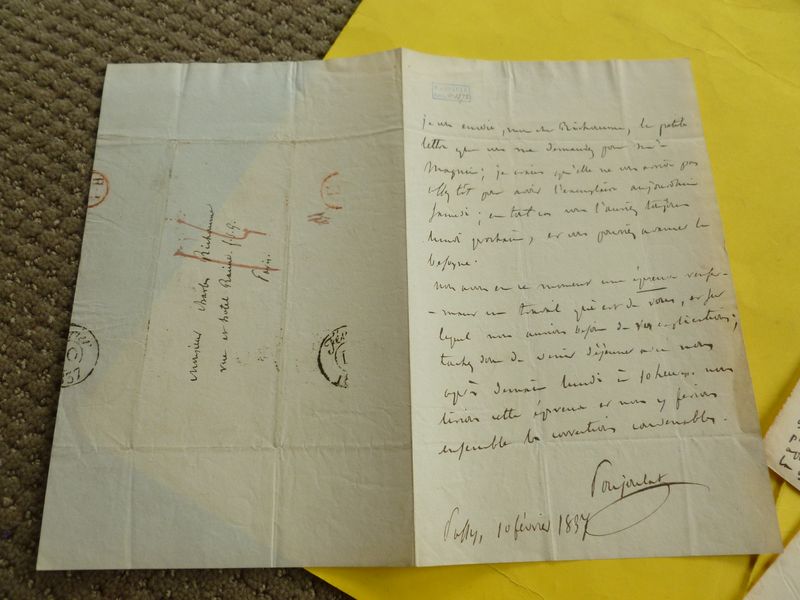 Monsieur Charles Richomme
rue et hotel Racine. f. s. g.
Paris.
je vous envoie, mon cher Richomme, la petite
lettre que vous me demandez pour M.
Magnin; je crains qu'elle ne vous arrive pas
assez tôt pour avoir l'exemplaire aujourd'hui
samedi; en tout cas vous l'auriez toujours
lundi prochain, et vous pourriez avancer la
besogne.
nous avons en ce moment une épreuve renfer-
-mant un travail qui est de vous, et sur
lequel nous aurions besoin de vos explications;
tachez donc de venir déjeuner avec nous
après demain lundi à 10 heures. nous
lirions cette épreuve et nous y ferions
ensemble les corrections convenables.
Poujoulat
Passy, 10 février 1837